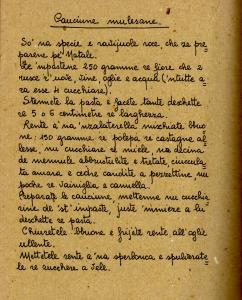 Cauciune mulesane.
So' na specie e ravijuole roce, che ze pre=
parene pe' Natale.
Ze 'mpastene 250 gramme re fiore che 2
rusce r'uove, vine, oglie e acqua ('ntutte a=
ra esse 4 cucchiare).
Stennete la pasta e facete tante deschette
re 5 o 6 centimetre re larghezza.
Rente a' na 'nzalaterella mischiate bbuo=
ne: 150 gramme re polepa re castagna al=
lesse, nu cucchiare re miele, na decina
de mennule abbrustulite e tretate, ciuccula=
ta amara e cedre candite a pezzettine, nu
poche re vainiglia e cannella.
Preparate le cauciune, mettenne nu cucchia=
rine de 'st' impaste, juste 'mmiere a lu
deschette re pasta.
Chiuretele bbuone e frijete rente all'oglie
vullente.
Mettetele rente a 'na sperlonca e spulverate=
le re zucchere a vele.